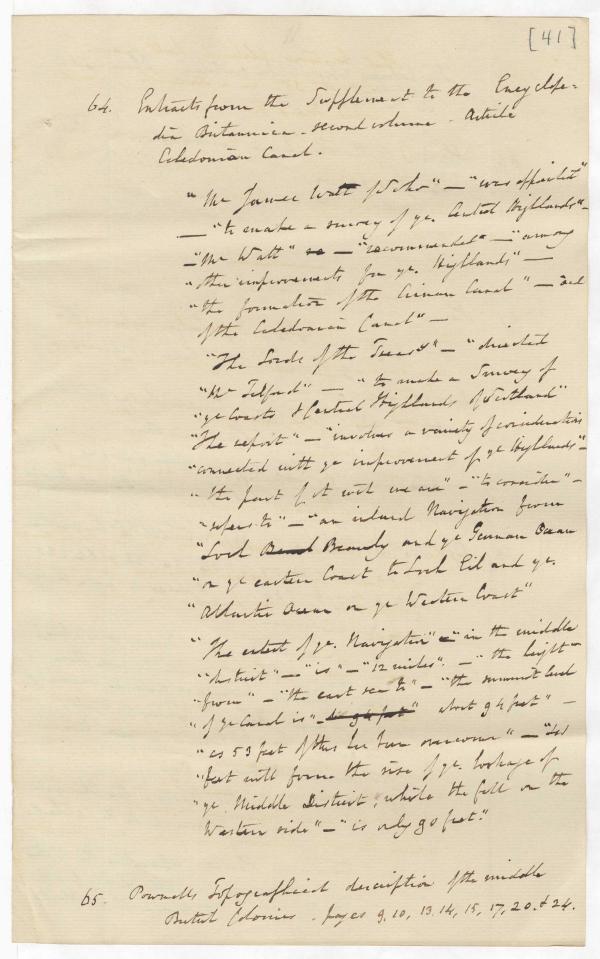 [41]
64. Extracts from the Supplement to the Encyclopæ-
dia Britannica - second volume - Article
Caledonian Canal.
"Mr James Watt of Soho" — "was appointed"
— "to make a survey of ye. Central Highlands" -
- "Mr Watt" — "recommended" — "among
"other improvements for ye. Highlands" —
"the formation of the Crinan Canal" — "and
of the Caledonian Canal" —
"The Lords of the Treasy" — "directed
"Mr Telford" — "to make a Survey of
"ye Coasts & Central Highlands of Scotland"
"The report" — "involves a variety of considerations
"connected with ye improvement of ye Highlands" -
"the part of it with we are" - "to consider" -
"refers to" — "an inland Navigation from
"Loch Beauly and ye German Ocean
"on ye eastern Coast to Loch Eil and ye.
"Atlantic Ocean on ye Western Coast"
"The extent of ye. Navigation" - "in the middle
"district" — "is" — "12 miles". — "the height
"from" — "the east sea to" — "the summit level
"of ye Canal is" about 94 feet" —
"as 53 feet of this has been overcome" —
"feet will form the rise of ye. lockage of
"ye. Middle District, while the fall on the
Western side" — "is only 90 feet."
65. Pownalls Topographical description of the middle
British Colonies - pages 9, 10, 13, 14, 15, 17, 20. & 24.